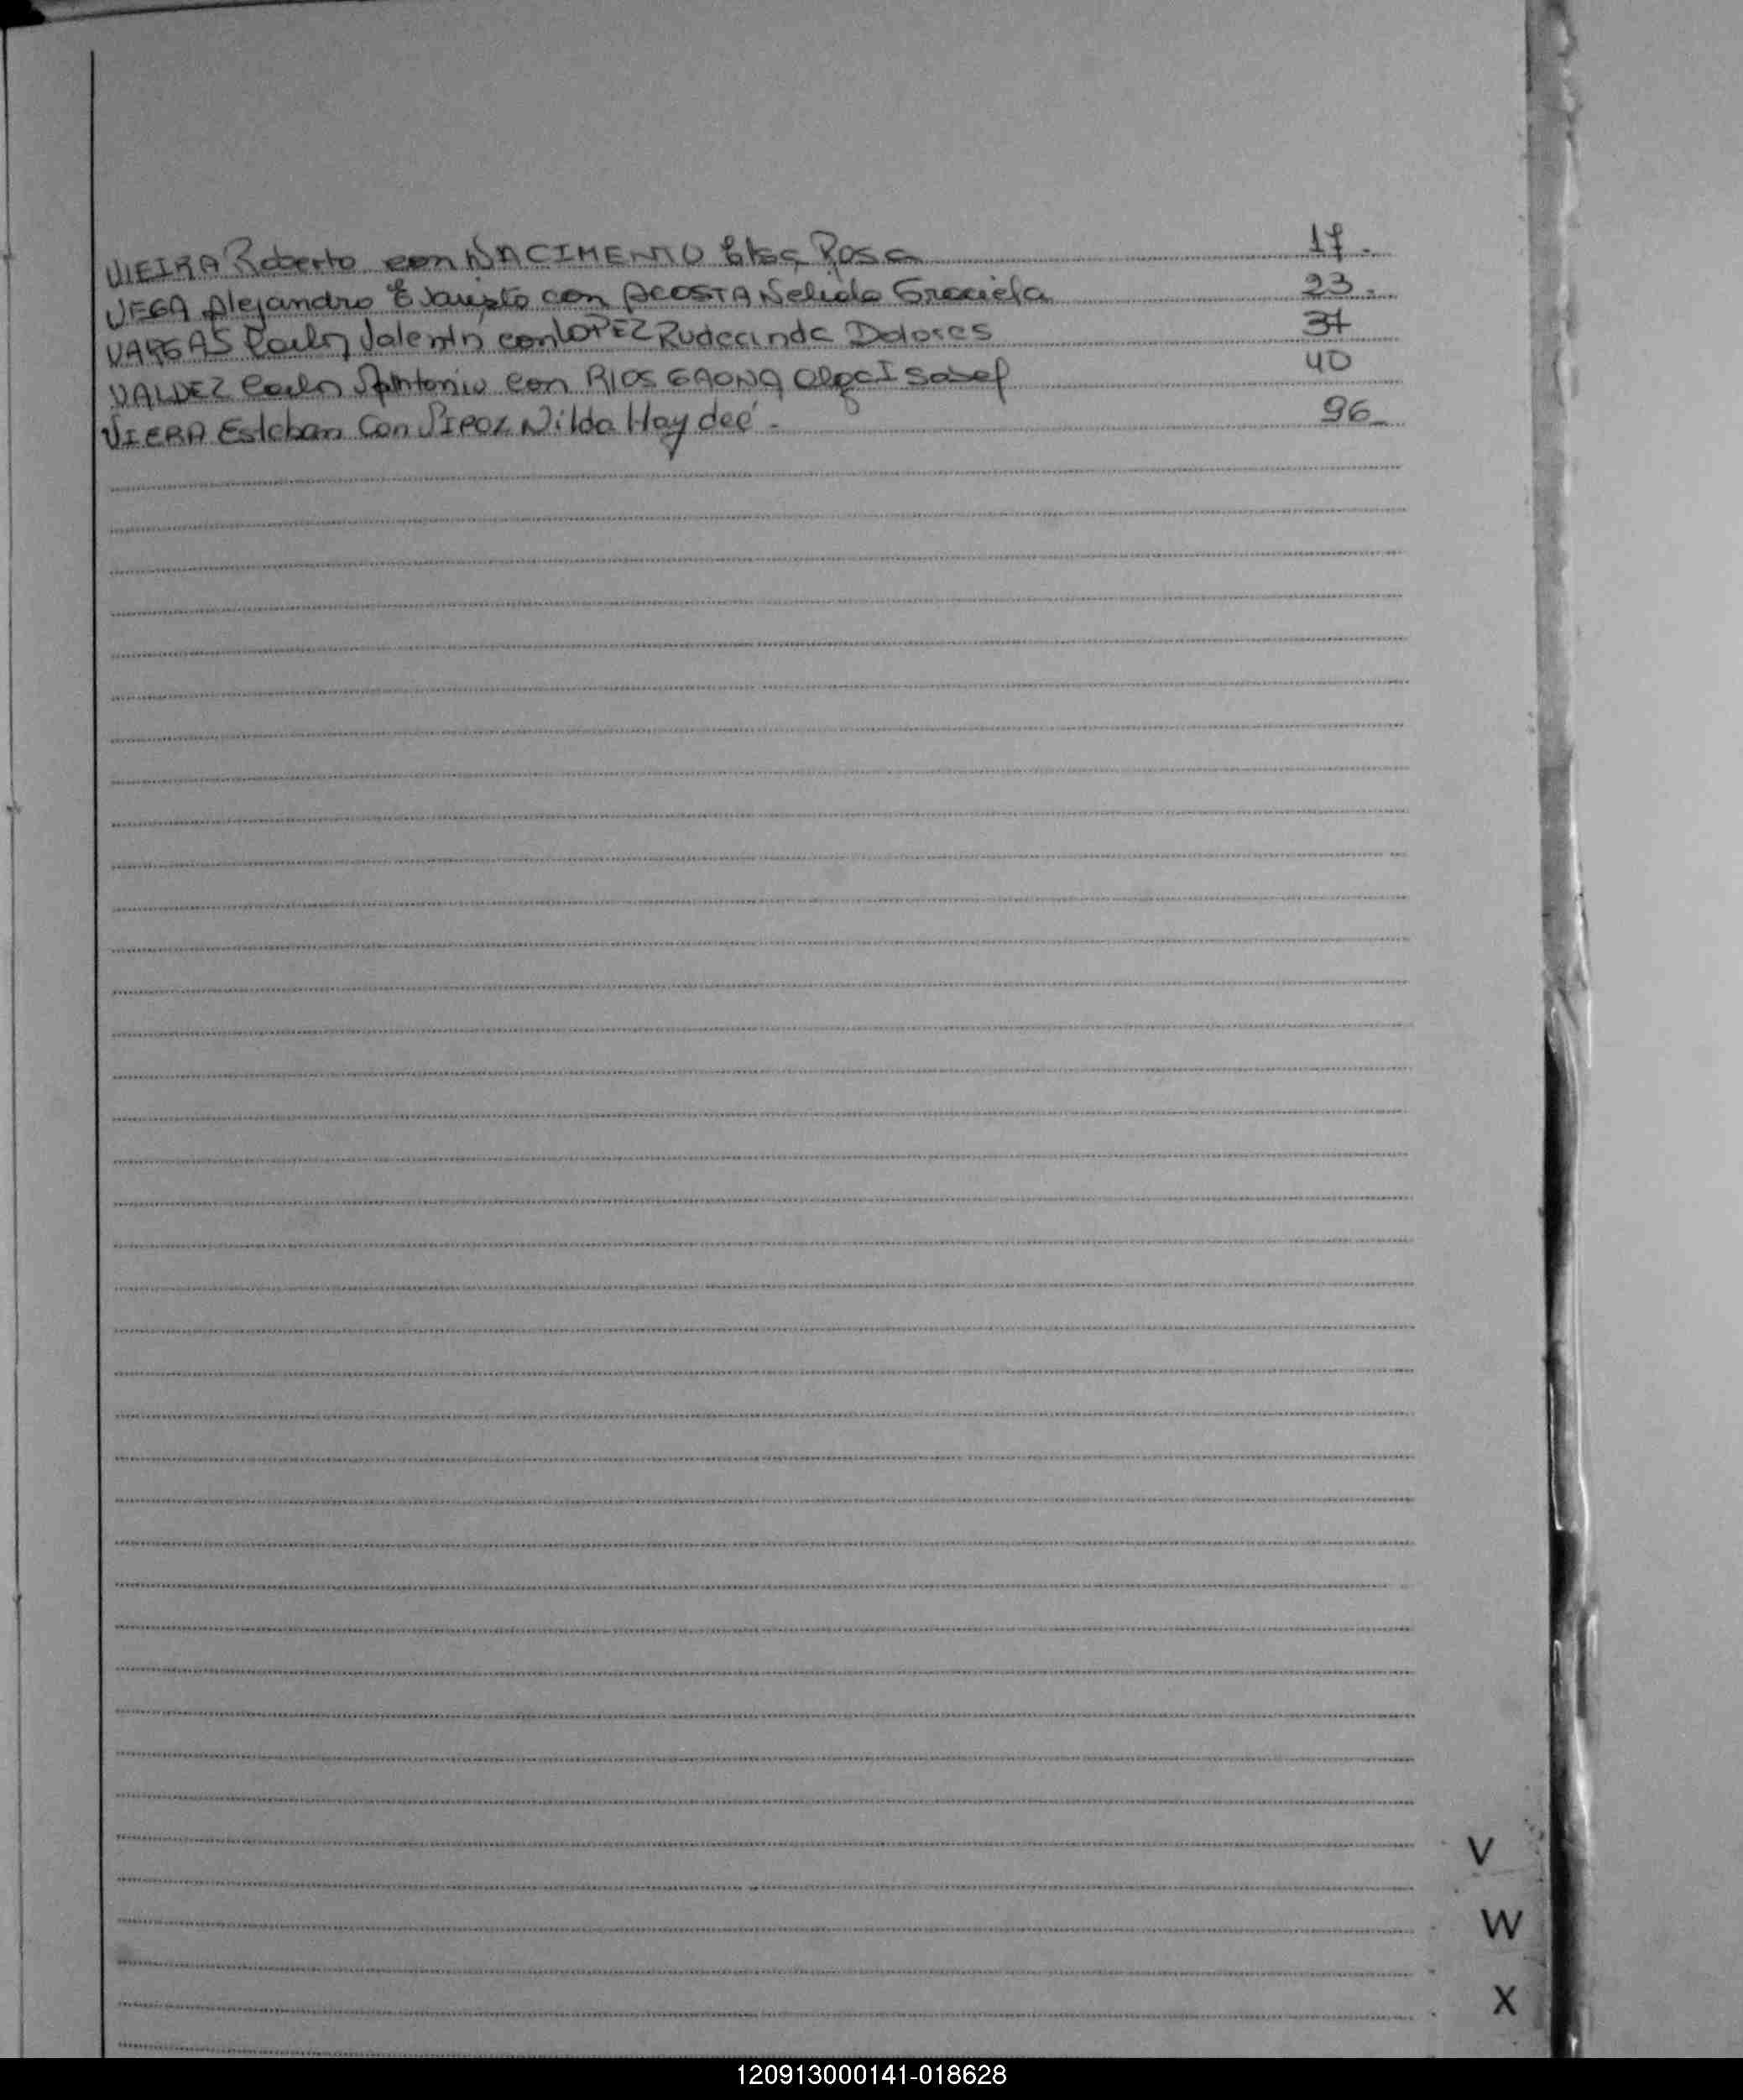 VIEIRA Roberto con NACIMENTO Elsa Rosa 17.
VEGA Alejandro Evaristo con ACOSTA Nelida Graciela 23.
VARGAS Carlos Valentín con LOPEZ Rudecinda Dolores 37
VALDEZ Carlos Antonio con RIOS GAONA Olga Isabel 40
VIERA Esteban Con Nilda Haydeé. 96
V
W
X
120913000141-018628